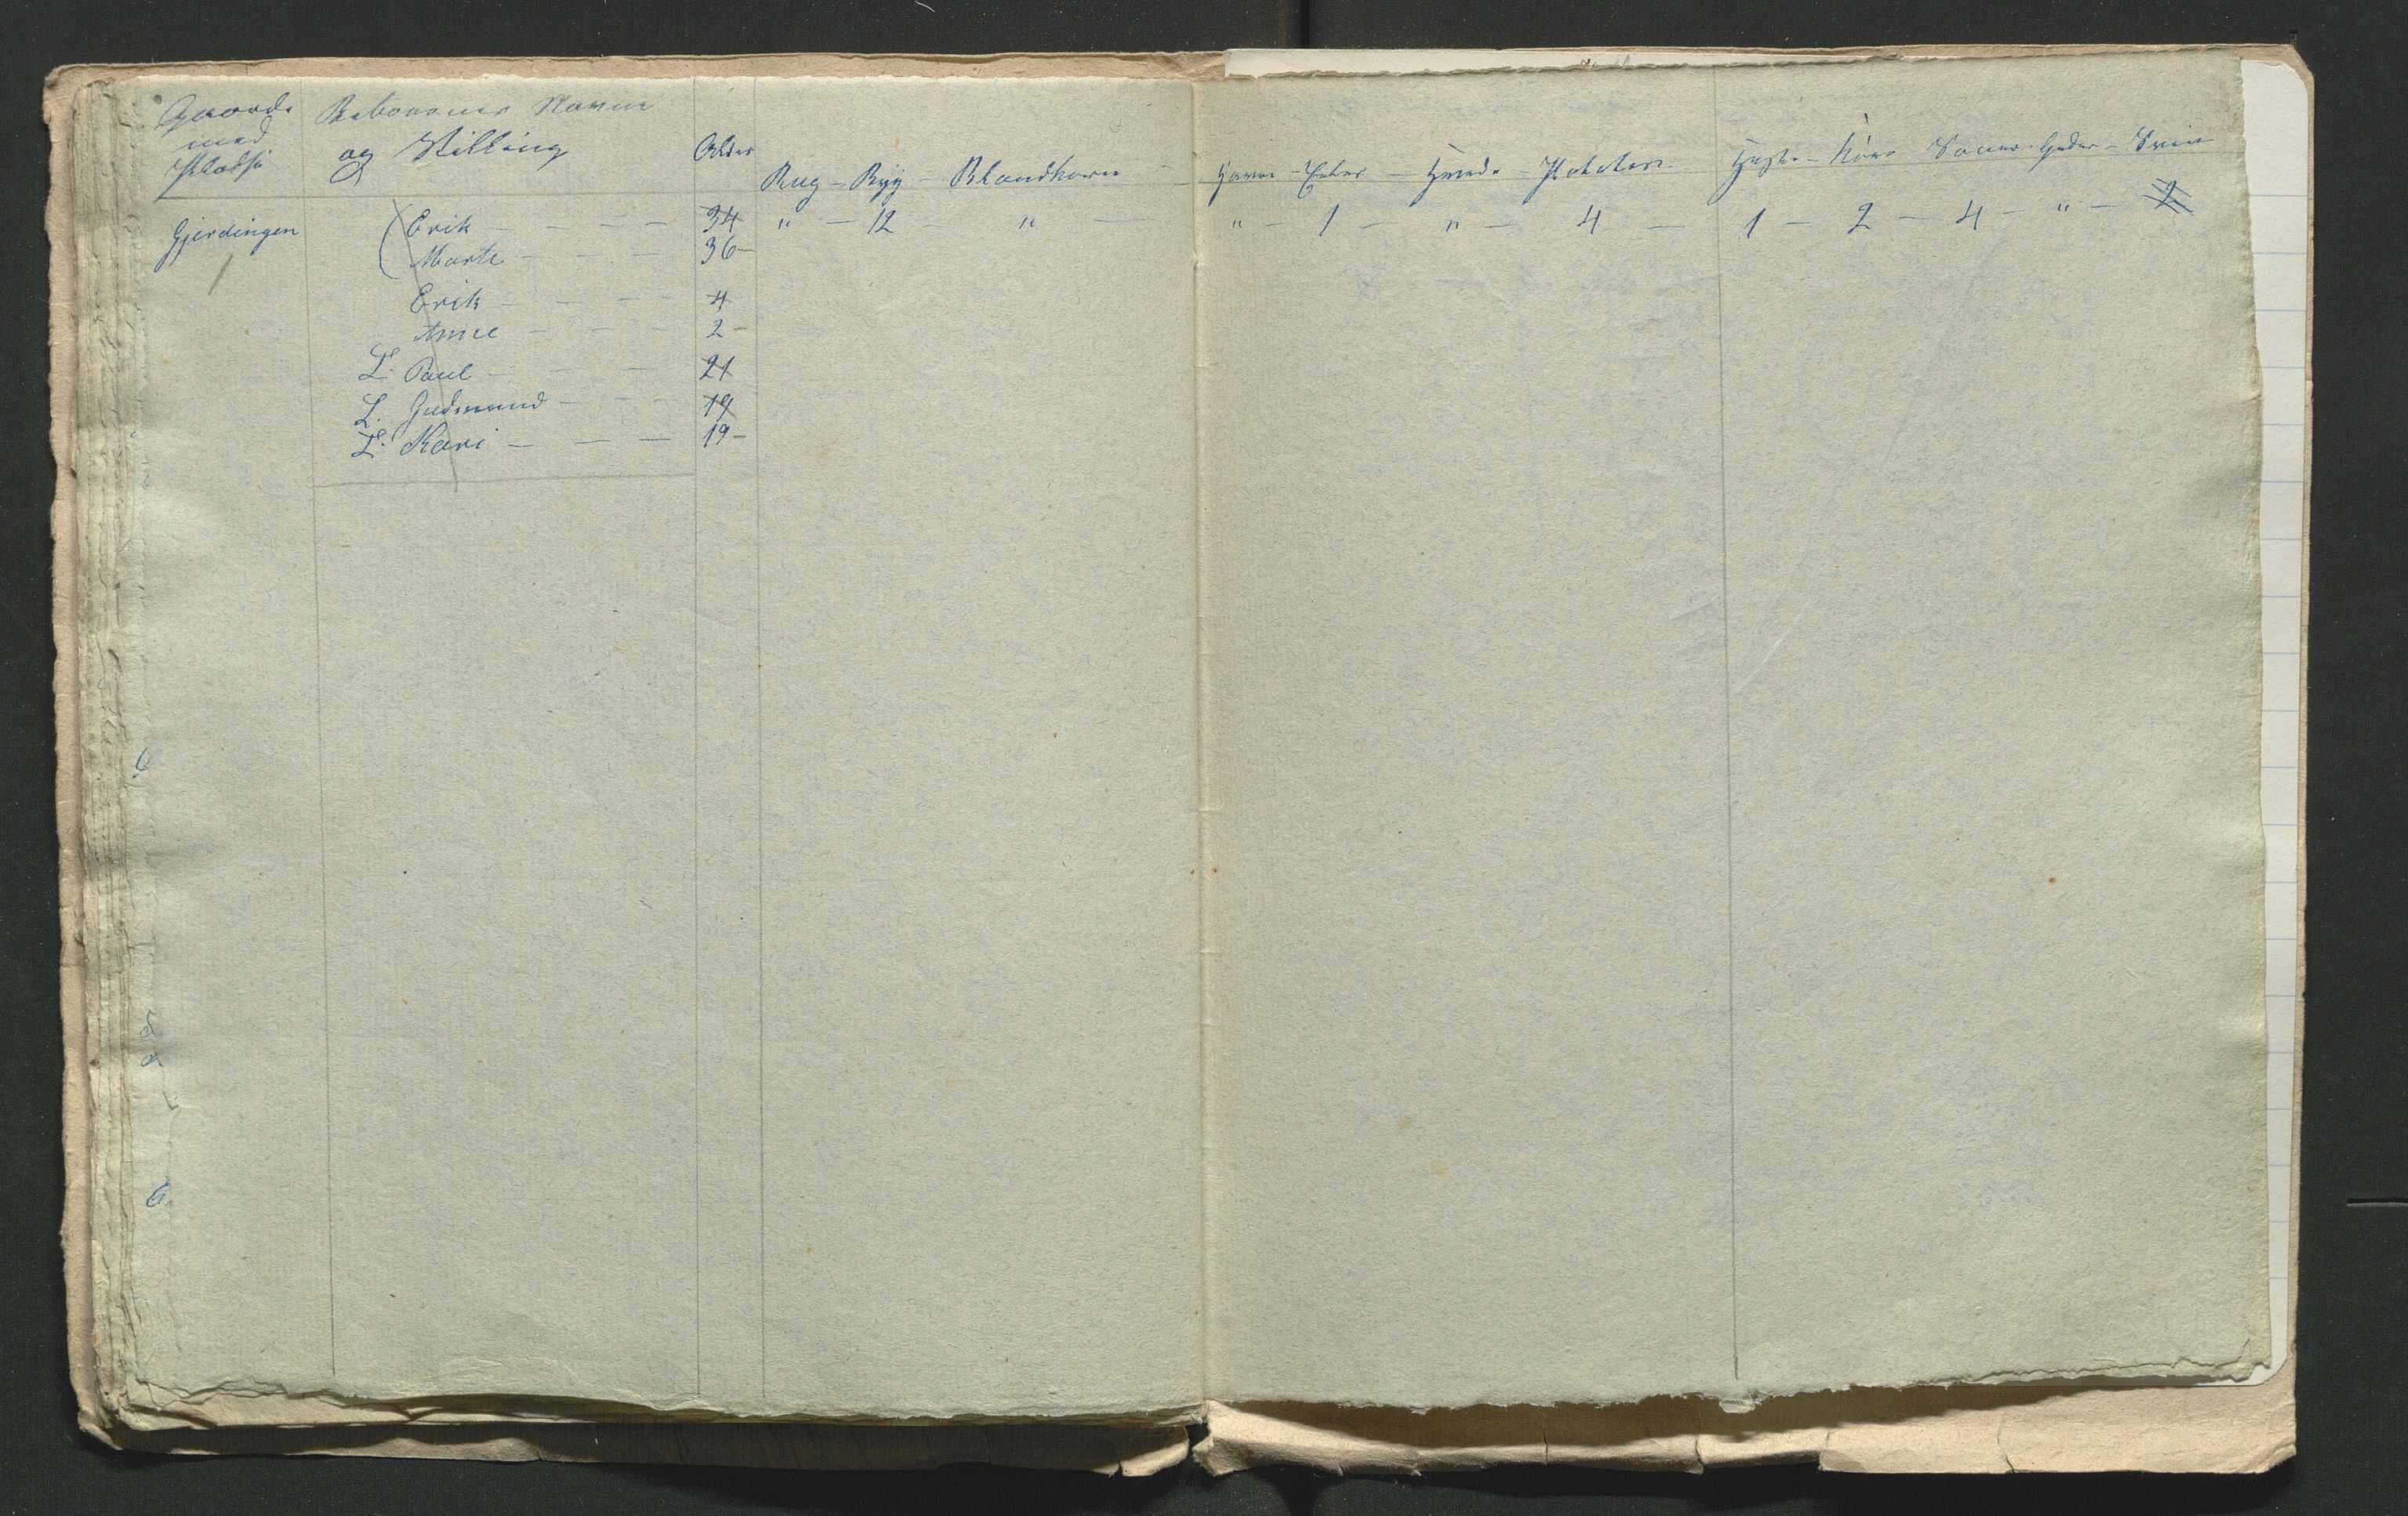 Gaarde Beboernes Navne
med og Stilling Alder
Pladse Rug - Byg - Blandkorn - Havre - Erter - Hvede - Poteter Heste - Kiør Souer - Geder - Sviin
Gjerdingen Erik - - - - 34 " - 12 - " - " - 1 - " - 4 - 1 - 2 - 4 - " - 2
Marte - - - - 36 -
Erik - - - - 4
Anne - - - - 2 -
L. Paul - - - - 21
L. Gudmund - - - 19
L. Kari - - - 19 -